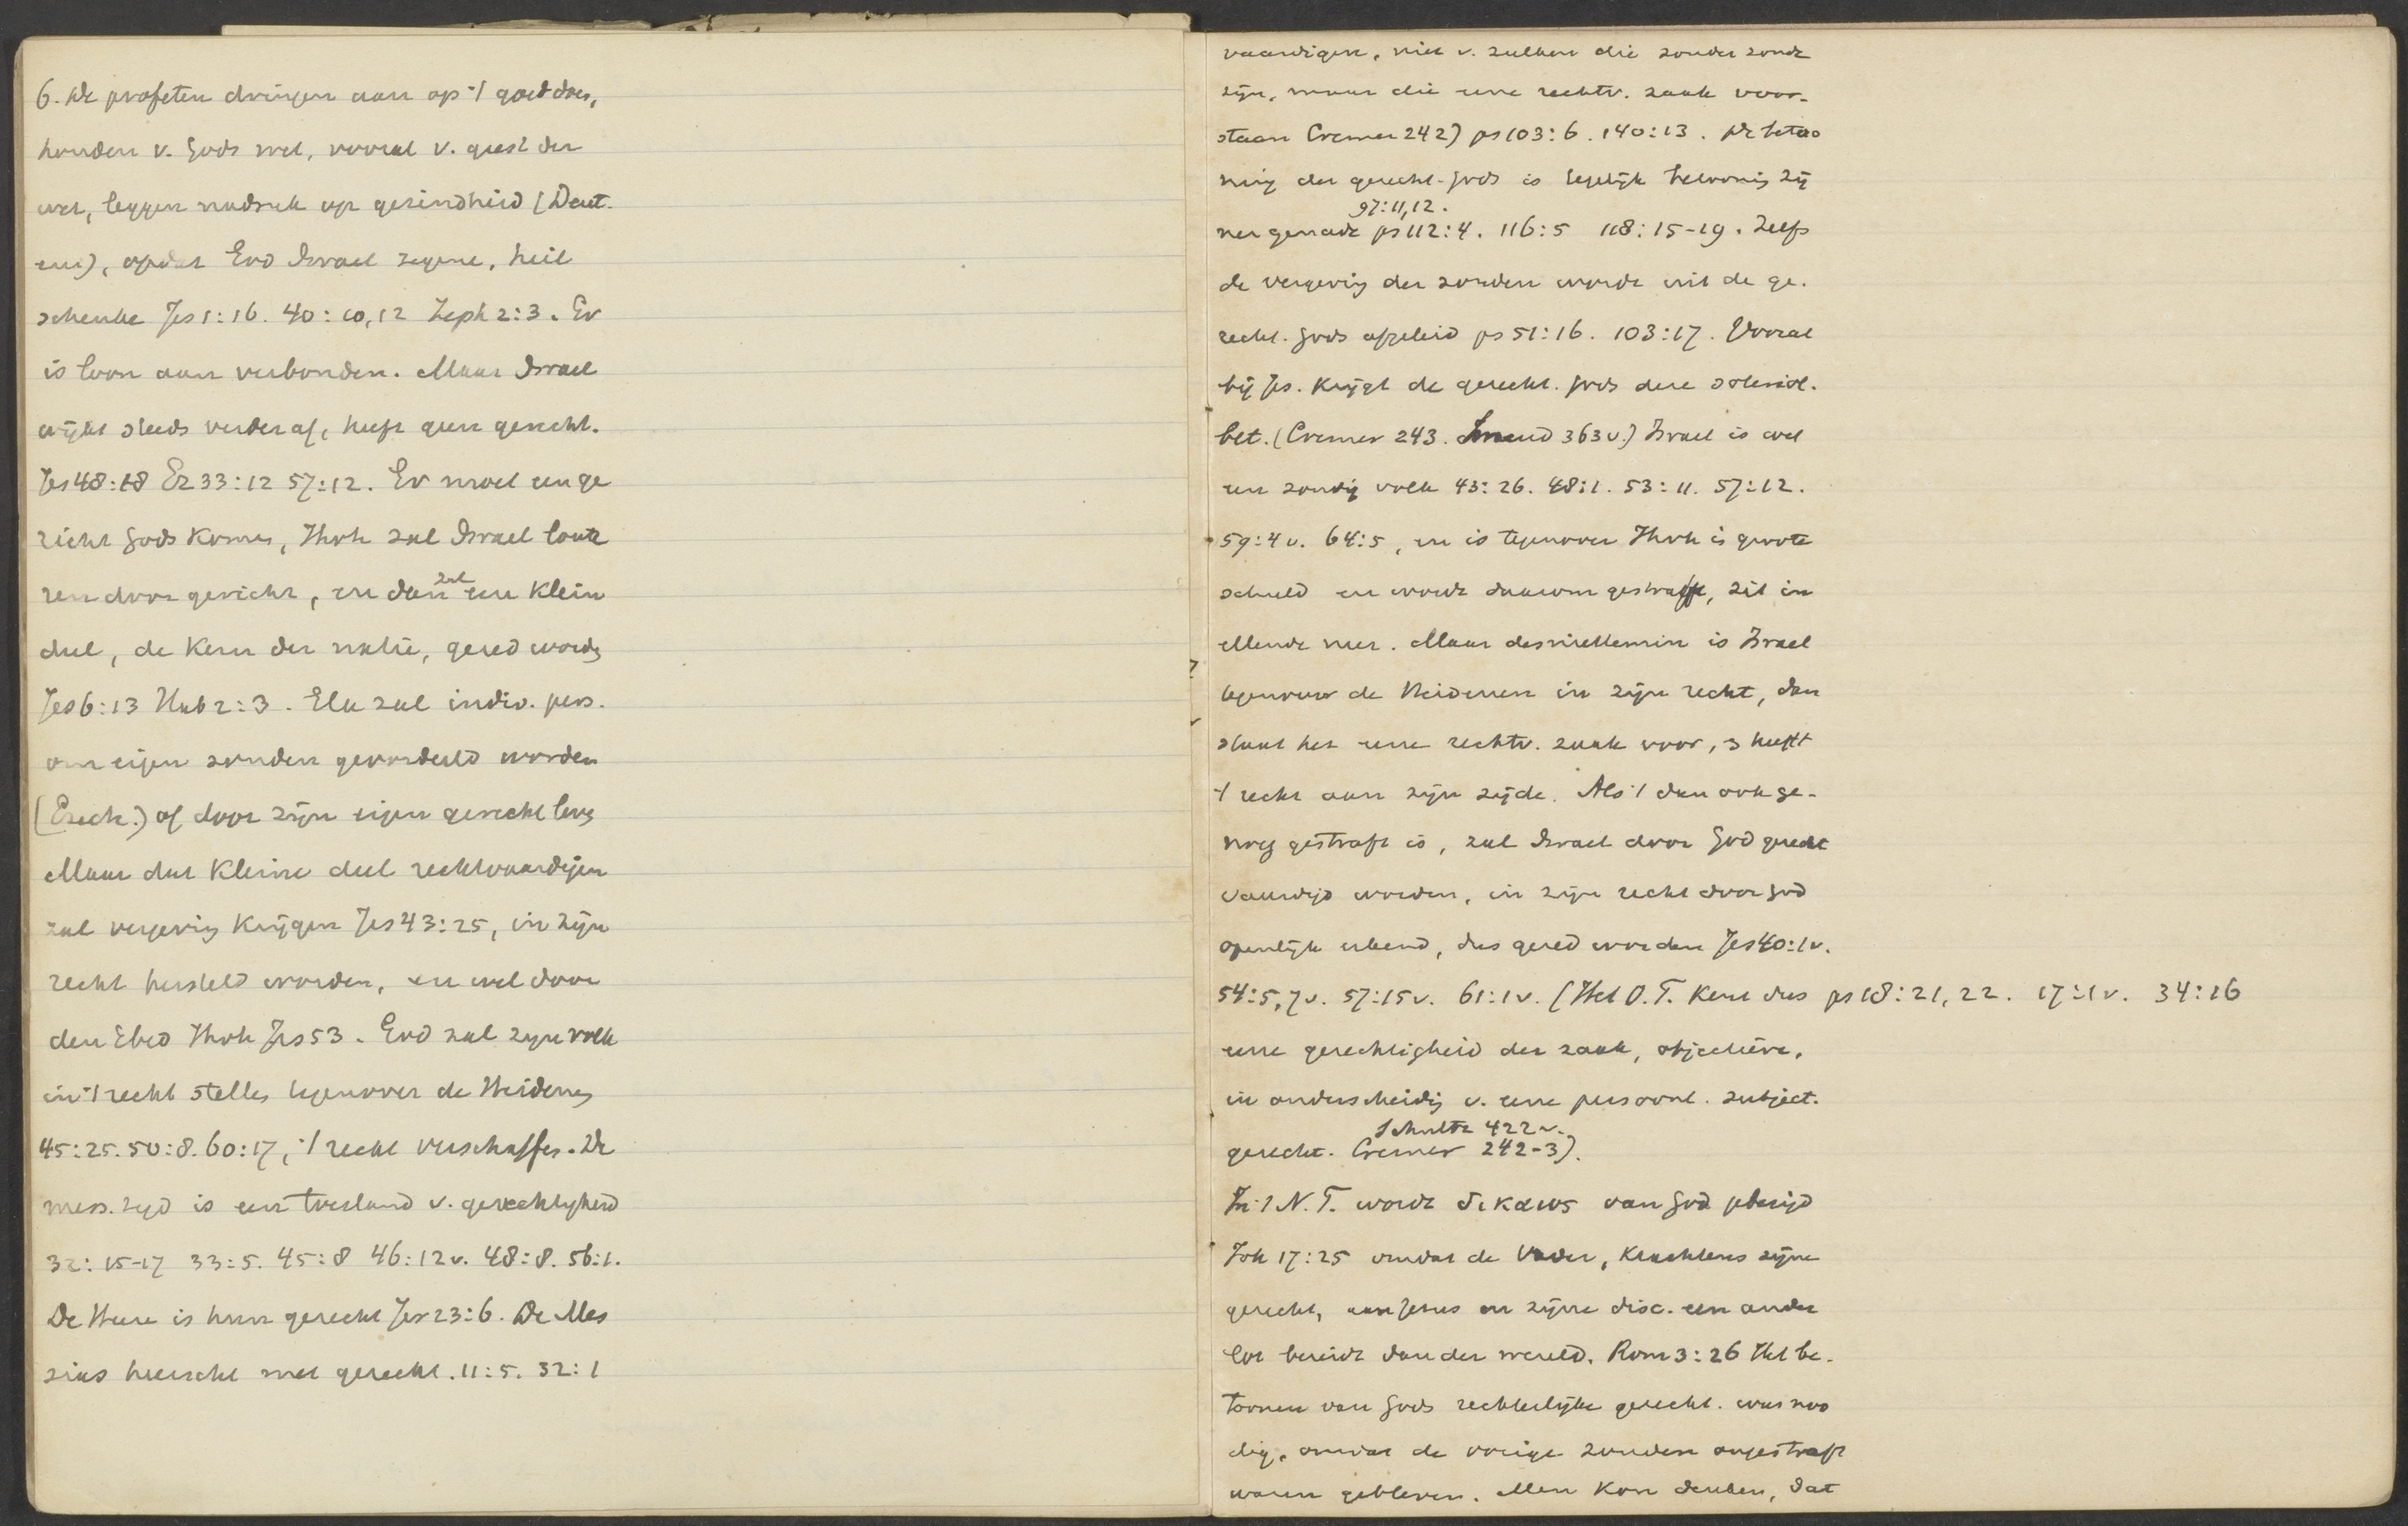 6. De profeten dringen aan op 't goed doen,
houden v. Gods wet, vooral v. geest der
wet, leggen nadruk op gezindheid (Deut.
en), opdat God Israel zegene, heil
schenke Jes 1:16. 40:10,12 Zeph 2:3. Er
is loon aan verbonden. Maar Israel
wijkt steeds verder af, heeft geen gerecht.
Jes 48:18 Ez 33:12 57:12. Er moet een ge
richt Gods komen, Jhvh zal Israel loute
ren door gericht, en dan zal een klein
deel, de kern der natie, gered worden
Jes 6:13 Hab 2:3. Elk zal indiv. pers.
om eigen zonden geoordeeld worden
(Ezech.) of door zijn eigen gerecht leven
Maar dat kleine deel rechtvaardigen
zal vergeving krijgen Jes 43:25, in zijn
recht hersteld worden, en wel door
den Ebed Jhvh Jes 53. God zal zijn volk
in 't recht stellen tegenover de Heidenen
45:25. 50:8. 60:17, 't recht verschaffen. De
mess. tijd is een toestand v. gerechtigheid
32:15-17 33:5. 45:8 46:12v. 48:8. 56:1.
De Heere is hun gerecht Jer 23:6. De Mes
sias heerscht met gerecht. 11:5. 32:1
vaardigen, niet v. zulken die zonder zonde
zijn, maar die eene rechtv. zaak voor-
staan Cremer 242) ps 103:6. 140:13. De betoo
ning der gerecht. Gods is tegelijk betooning zij
97:11,12.
ner genade ps 112:4. 116:5 118:15-19. Zelfs
de vergeving der zonden wordt uit de ge-
recht. Gods afgeleid ps 51:16. 103:17. Vooral
bij Jes. krijgt de gerecht. Gods deze soteriol.
bet. (Cremer 243. Smend 363v.) Israel is wel
een zondig volk 43:26. 48:1. 53:11. 57:12.
59:4v. 64:5, en is tegenover Jhvh is groote
schuld en wordt daarom gestraft, zit in
ellende neer. Maar desniettemin is Israel
tegenover de Heidenen in zijn recht, dan
staat het eene rechtv. zaak voor, heeft
't recht aan zijn zijde. Als 't dan ook ge-
noeg gestraft is, zal Israel door God gerecht
vaardigd worden, in zijn recht door God
openlijk erkend, dus gered worden Jes 40:1v.
54:5,7v. 57:15v. 61:1v. (Het O.T. kent dus ps 18:21,22. 17:1v. 34:16
eene gerechtigheid der zaak, objectieve,
in onderscheiding v. eene persoonl. subject.
Schultz 422v.
gerecht. Cremer 242-3).
In 't N.T. wordt δικαιος van God gebezigd
Joh 17:25 omdat de Vader, krachtens zijne
gerecht, aan Jezus en zijne disc. een ander
lot bereidt dan der wereld. Rom 3:26 Het be-
toonen van Gods rechterlijke gerecht. was noo
dig, omdat de vorige zonden ongestraft
waren gebleven. Men kon denken, dat